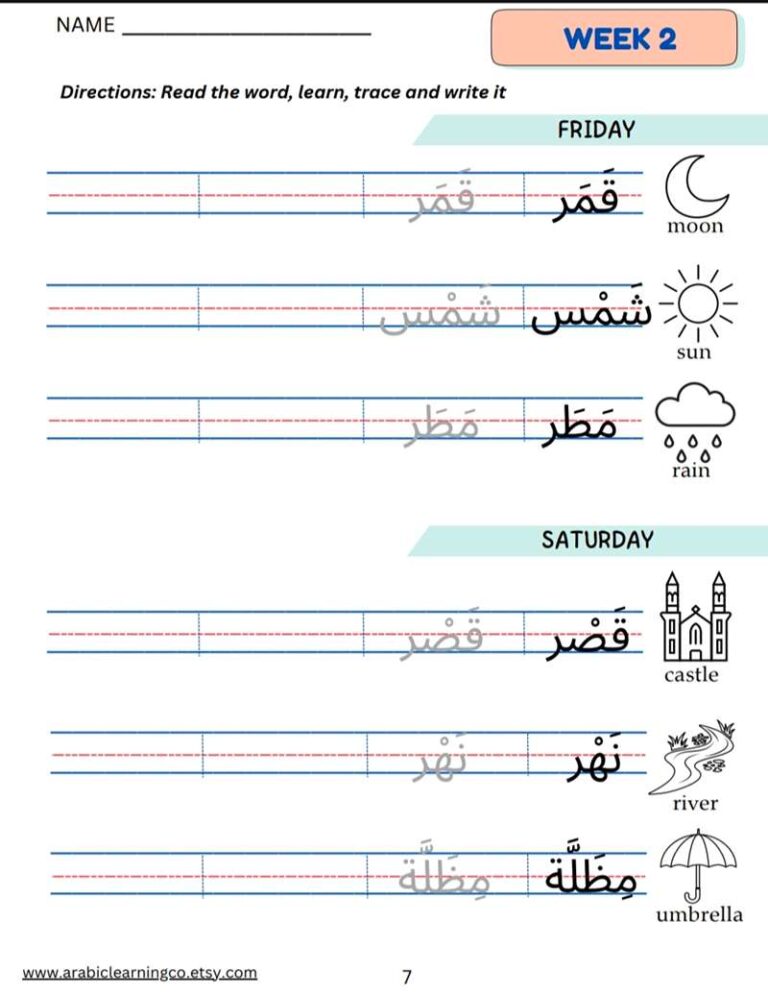 NAME
WEEK 2
Directions: Read the word, learn, trace and write it
FRIDAY
قَمَر قَمَر
moon
شَمْس شَمْس
sun
مَطَر مَطَر
rain
SATURDAY
قَصْر قَصْر
castle
نَهْر نَهْر
river
مِظَلَّة مِظَلَّة
umbrella
www.arabiclearningco.etsy.com
7